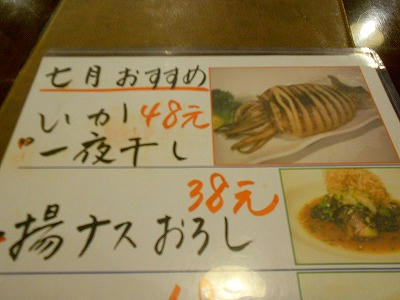 七月 おすすめ
いか 48元
一夜干し
38元
揚ナス おろし